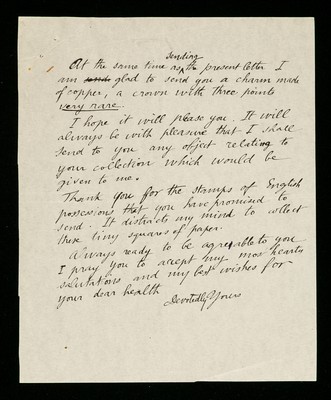 At the same time as sending the present letter I
am glad to send you a charm made
of copper, a crown with three points
very rare.
I hope it will please you. It will
always be with pleasure that I shall
send to you any object relating to
your collection which would be
given to me.
Thank you for the stamps of English
possessions that you have promised to
send. It distracts my mind to collect
these tiny squares of paper.
Always ready to be agreable to you
I pray you to accept my most hearty
salutations and my best wishes for
your dear health
Devotedly Yours